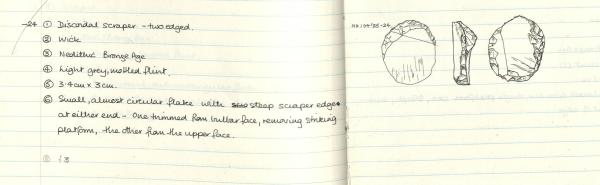 -24 ① Discoidal scraper - two edged.
② Wick
③ Neolithic Bronze Age
④ Light grey, mottled flint.
⑤ 3.4cm x 3cm.
⑥ Small, almost circular flake with steep scraper edge
at either end - One trimmed from bulbar face, removing striking
platform, the other from the upper face.
⑧ £3